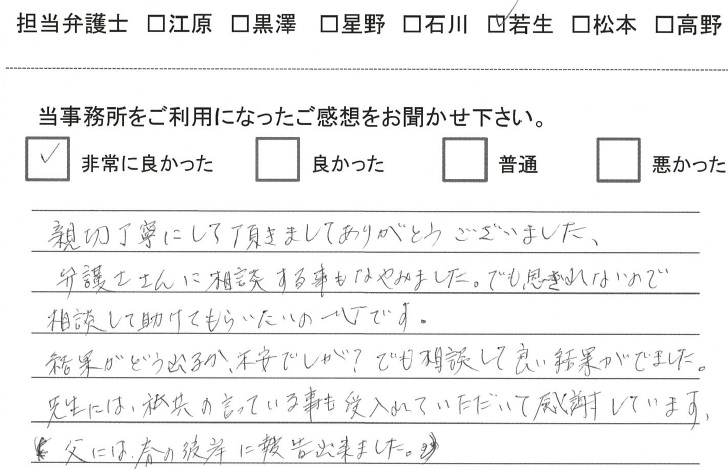 担当弁護士 □江原 □黒澤 □星野 □石川 ☑若生 □松本 □高野
当事務所をご利用になったご感想をお聞かせ下さい。
☑ 非常に良かった □ 良かった □ 普通 □ 悪かった
親切丁寧にして頂きましてありがとうございました、
弁護士さんに相談する事もなやみました。でも思いきれないので
相談して助けてもらいたいの一心です。
結果がどう出るか、不安でしたが? でも相談して良い結果がでました。
先生には、私共の言っている事も受入れていただいて感謝しています、
父には、春の彼岸に報告出来ました。